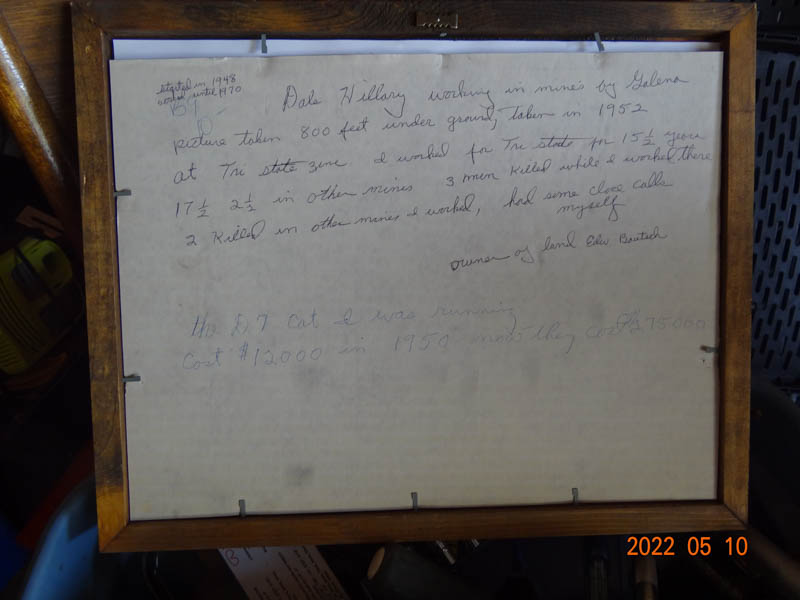 started in 1948
worked until 1970
Dale Hillary working in mines by Galena
picture taken 800 feet under ground, taken in 1952
at Tri state zinc. I worked for Tri state for 15½ years
17½ 2½ in other mines 3 men killed while I worked there
2 killed in other mines I worked, had some close calls
myself
owner of land Edw Bautsch
the D.7 Cat I was running
Cost $12000 in 1950 now they cost
2022 05 10